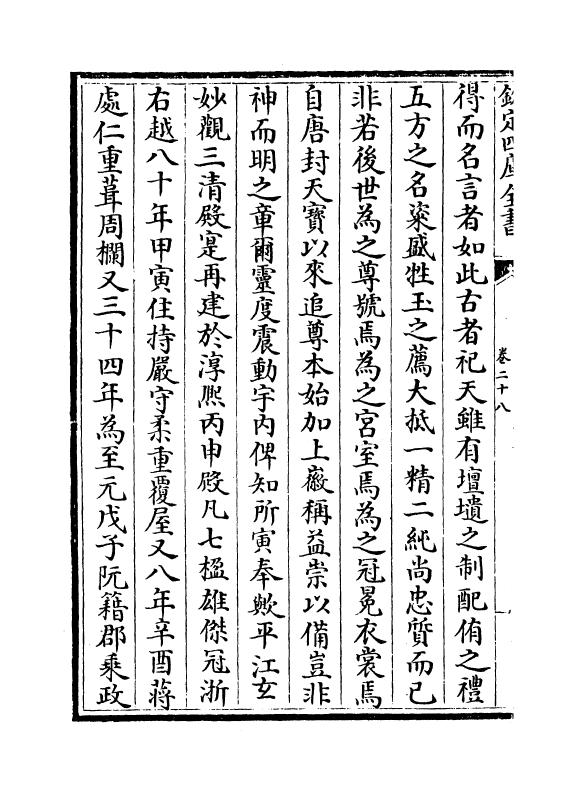 欽定四庫全書
卷二十八
得而名言者如此古者祀天雖有壇壝之制配侑之禮
五方之名粢盛牲玉之薦大抵一精二純尚忠質而已
非若後世為之尊號焉為之宮室焉為之冠冕衣裳焉
自唐封天寶以來追尊本始加上徽稱益崇以備豈非
神而明之章爾靈度震動宇内俾知所寅奉歟平江玄
妙觀三清殿寔再建於淳熈丙申殿凡七楹雄傑冠浙
右越八十年甲寅住持嚴守柔重覆屋又八年辛酉蔣
處仁重葺周欄又三十四年為至元戊子阮籍郡乘政